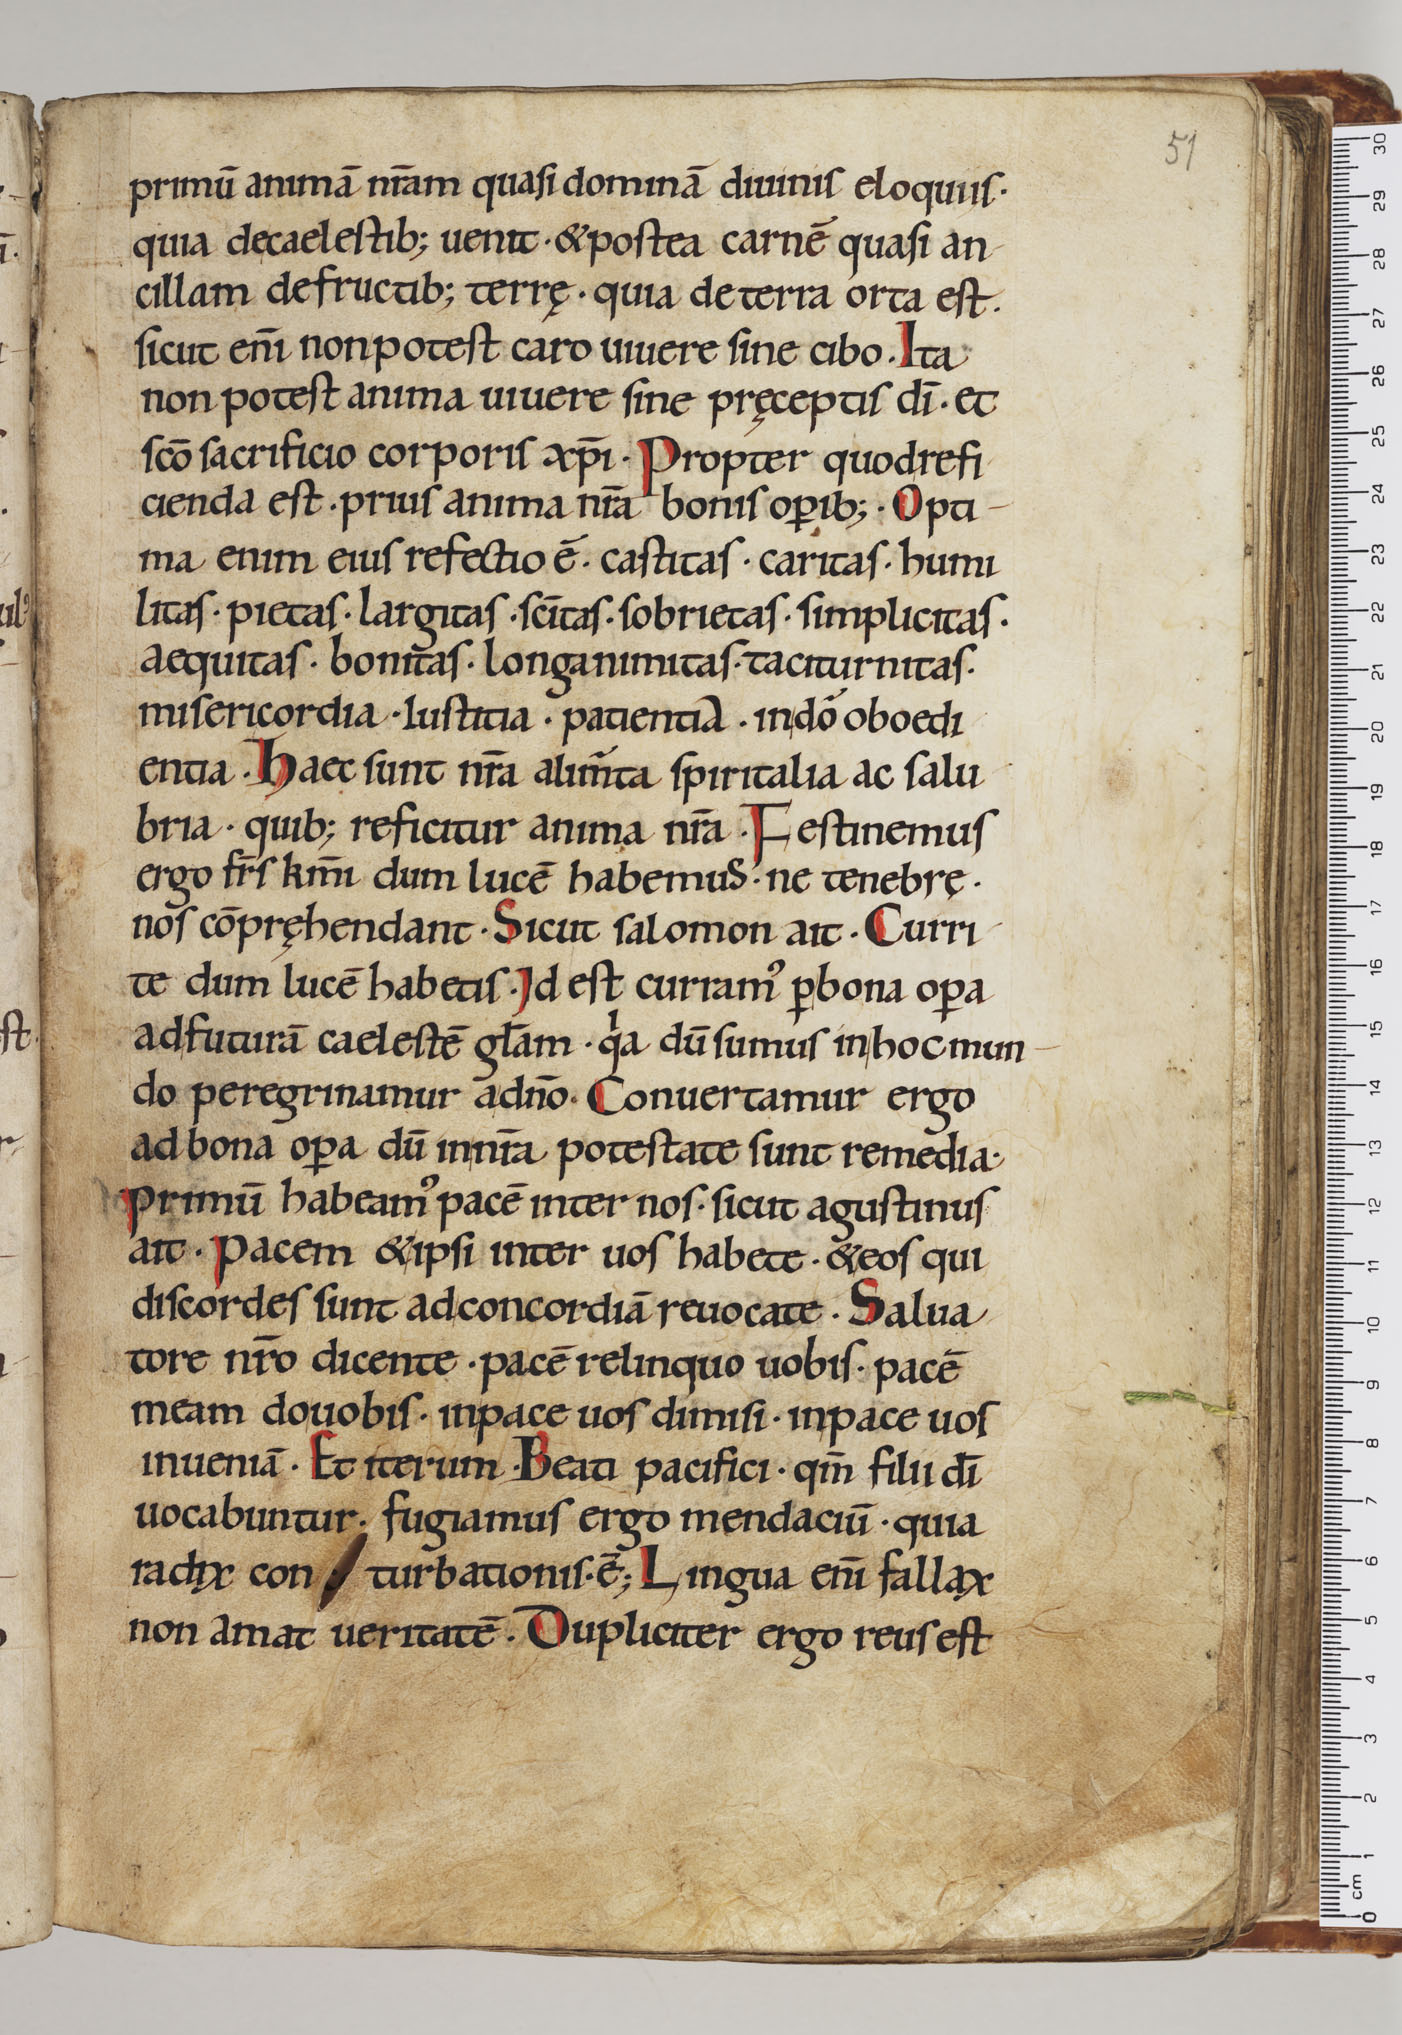 51
primū animā nr̄am quasi dominā diuinis eloquiis·
quia de caelestib; uenit · & postea carnē quasi an
cillam de fructib; terrę · quia de terra orta est.
sicut eni̅ non potest caro uiuere sine cibo. Ita
non potest anima uiuere sine pręceptis di̅ · et
sc̄o sacrificio corporis xp̄i · Propter quod refi
cienda est · prius anima nr̄a bonis oꝑib; · Opti
ma enim eius refectio ē · castitas · caritas · humi
litas · pietas · largitas · sc̄itas · sobrietas · simplicitas ·
aequitas · bonitas · longanimitas · taciturnitas ·
misericordia · Iustitia · patientia · in dō oboedi
entia · Haec sunt nr̄a alim̄ta spiritalia ac salu
bria · quib; reficitur anima nr̄a · Festinemus
ergo fr̄s km̄i dum lucē habemus · ne tenebrę ·
nos cōpręhendant · Sicut salomon ait · Curri
te dum lucē habetis · Id est curram᾿ ꝑ bona oꝑa
ad futurā caelestē gl̄am · qͥa dū sumus in hoc mun
do peregrinamur a dn̄o · Conuertamur ergo
ad bona oꝑa dū in nr̄a potestate sunt remedia ·
Primū habeam᾿ pacē inter nos · sicut agustinus
ait · Pacem & ipsi inter uos habete · & eos qui
discordes sunt ad concordiā reuocate · Salua
tore nr̄o dicente · pacē relinquo uobis · pacē
meam do uobis · in pace uos dimisi · in pace uos
inueniā · Et iterum · Beati pacifici · qm̄ filii di̅
uocabuntur · fugiamus ergo mendaciū · quia
radix con turbationis · ē; Lingua eni̅ fallax
non amat ueritatē · Dupliciter ergo reus est
30
29
28
27
26
25
24
23
22
21
20
19
18
17
16
15
14
13
12
11
10
9
8
7
6
5
4
3
2
1
cm
0